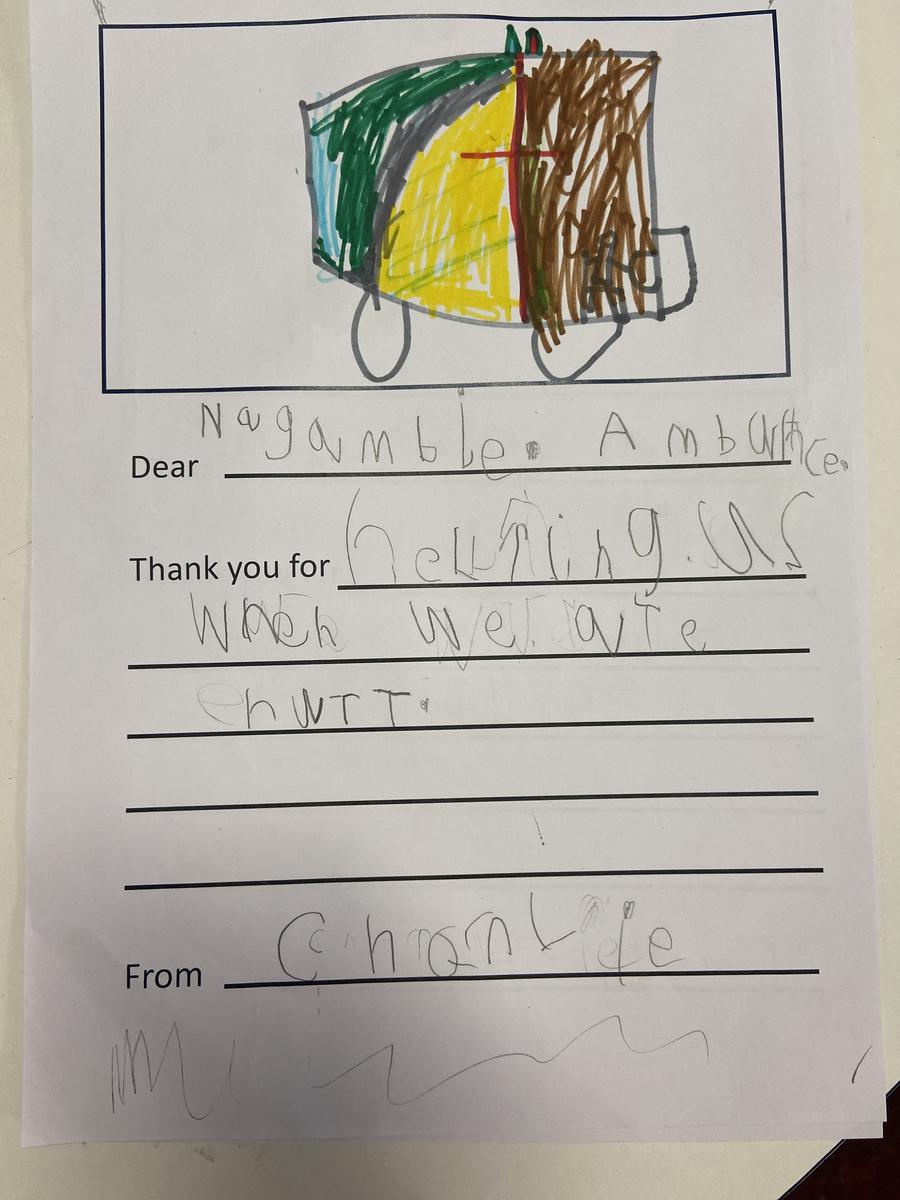 Dear Nagambie. Ambulance.
Thank you for helping. us
when we. are
hurt.
From Charlie